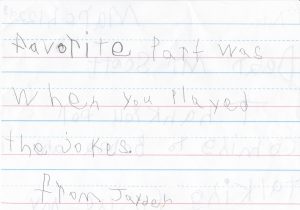 Favorite Part was
when you Played
the jokes.
from Jayden